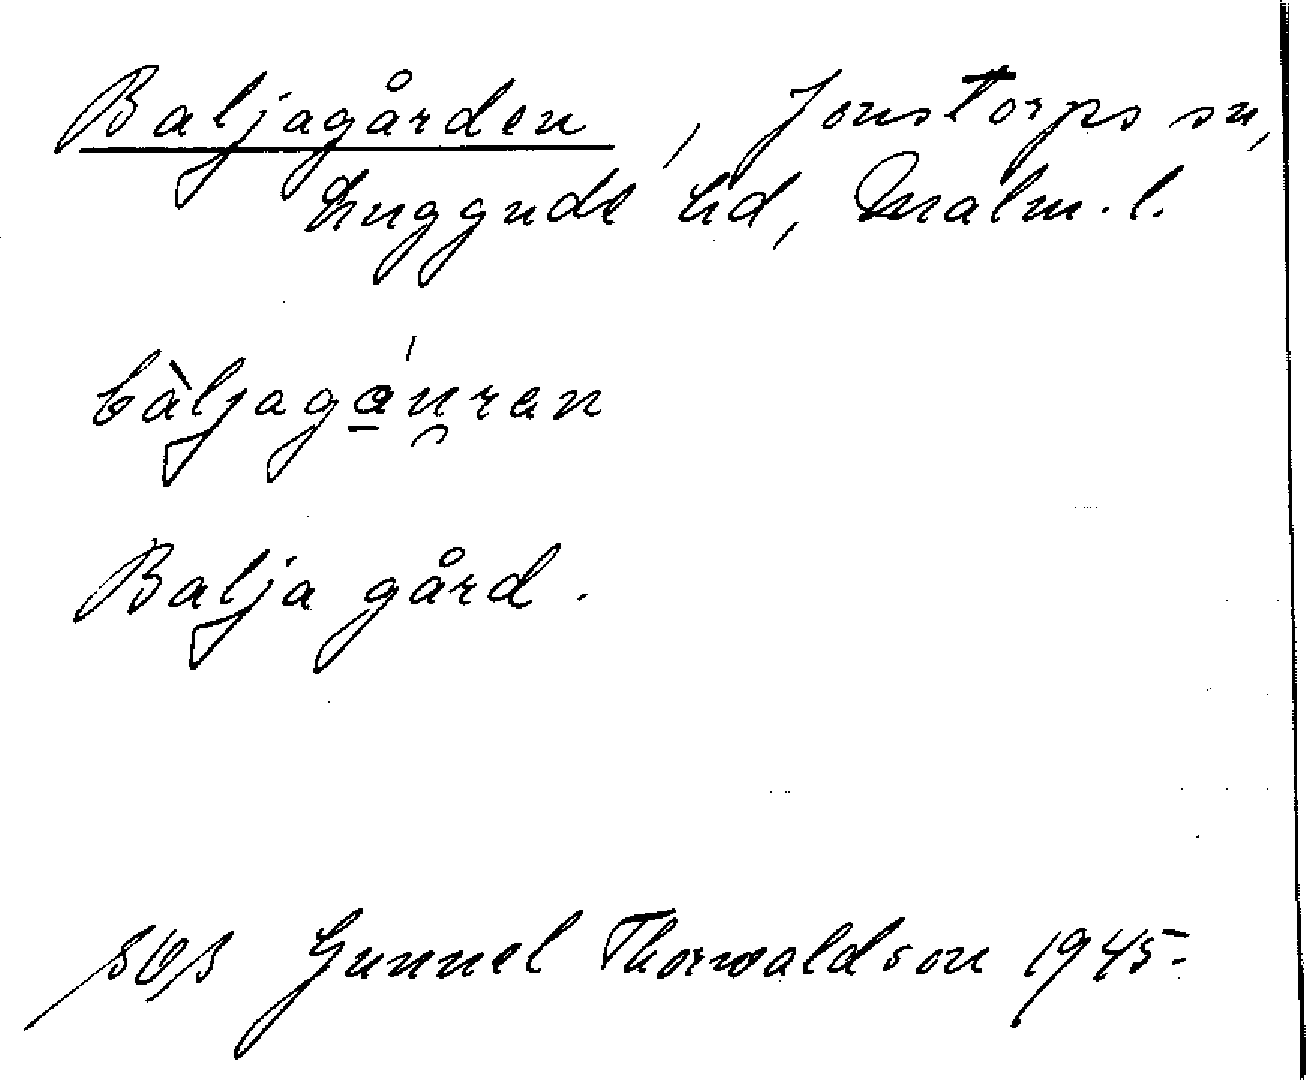 Baljagården, Jonstorps sn,
Luggude hd, Malm. l.
bàljagá̱u̯ran
Balja gård.
Gunnel Thorwaldson 1945